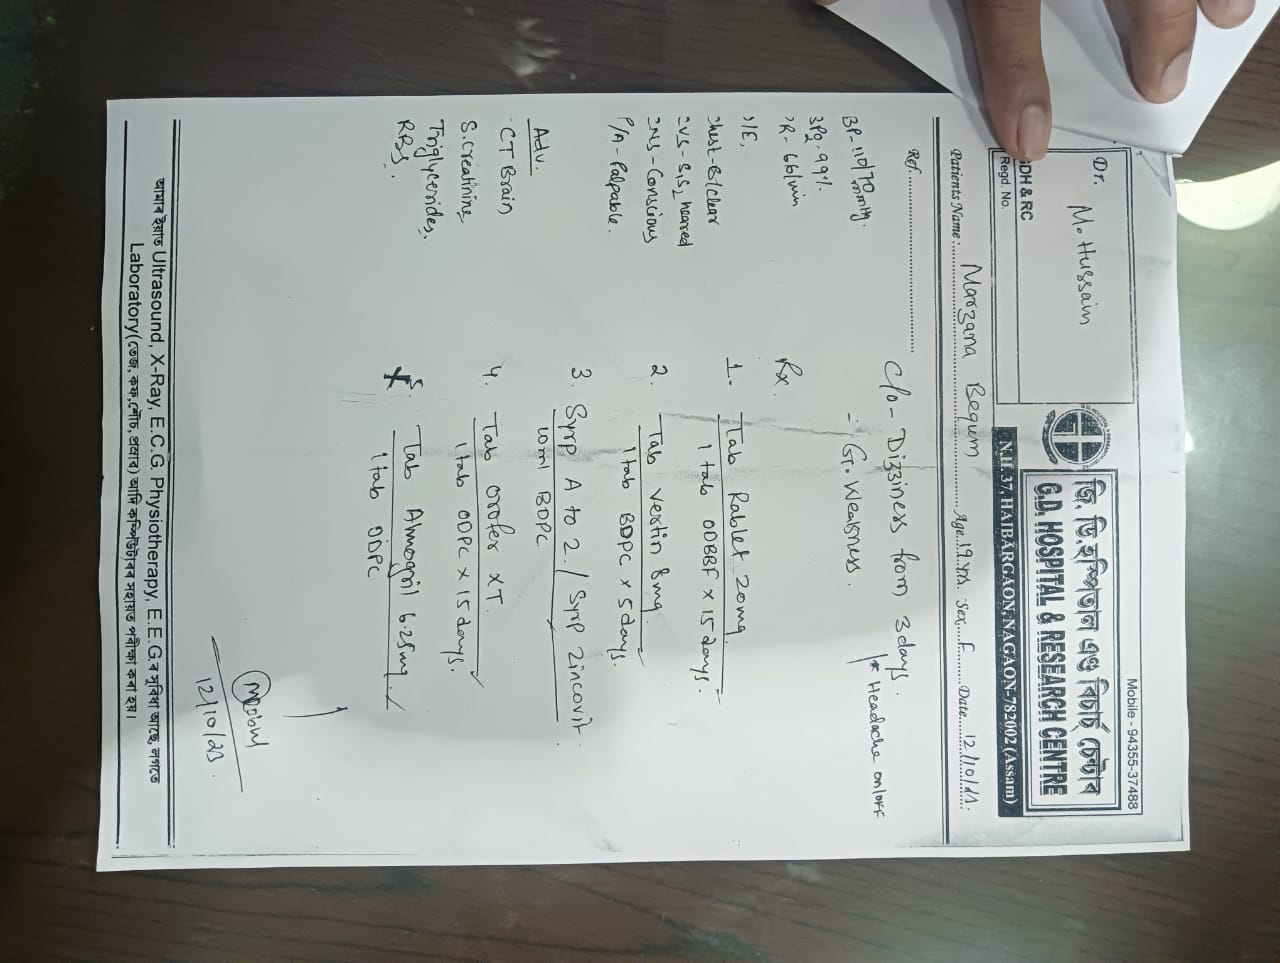 Mobile - 94355-37488
জি. ডি. হস্পিতাল এণ্ড ৰিচাৰ্চ চেণ্টাৰ
G.D. HOSPITAL & RESEARCH CENTRE
N.H.37, HAIBARGAON, NAGAON-782002 (Assam)
Dr. M. Hussain
GDH & RC
Regd. No.
Patients Name : Marzana Begum Age 19 yrs. Sex F Date 12/10/23.
Ref.
C/o - Dizziness from 3 days.
- G. Weakness.
* Headache on/off
BP - 110/70 mmHg.
SPO2 - 99%.
PR - 66/min
O/E,
Chest - B/clear
CVS - S1S2 heared
CNS - Conscious
P/A - Palpable.
Adv.
CT Brain
S. creatinine
Triglycerides.
RBS.
Rx.
1. Tab Rablet 20mg
1 tab ODBBF x 15 days.
2. Tab vertin 8mg.
1 tab BDPC x 5 days.
3. Syrp A to Z / Syrp Zincovit.
10ml BDPC
4. Tab orofer XT.
1 tab ODPC x 15 days.
5. Tab Almogril 6.25mg.
1 tab ODPC
12/10/23.
আমাৰ ইয়াত Ultrasound, X-Ray, E.C.G, Physiotherapy, E.E.G ৰ সুবিধা আছে, লগতে
Laboratory (তেজ, কফ, শৌচ, প্ৰস্ৰাৱ) আদি কম্পিউটাৰৰ সহায়ত পৰীক্ষা কৰা হয়।